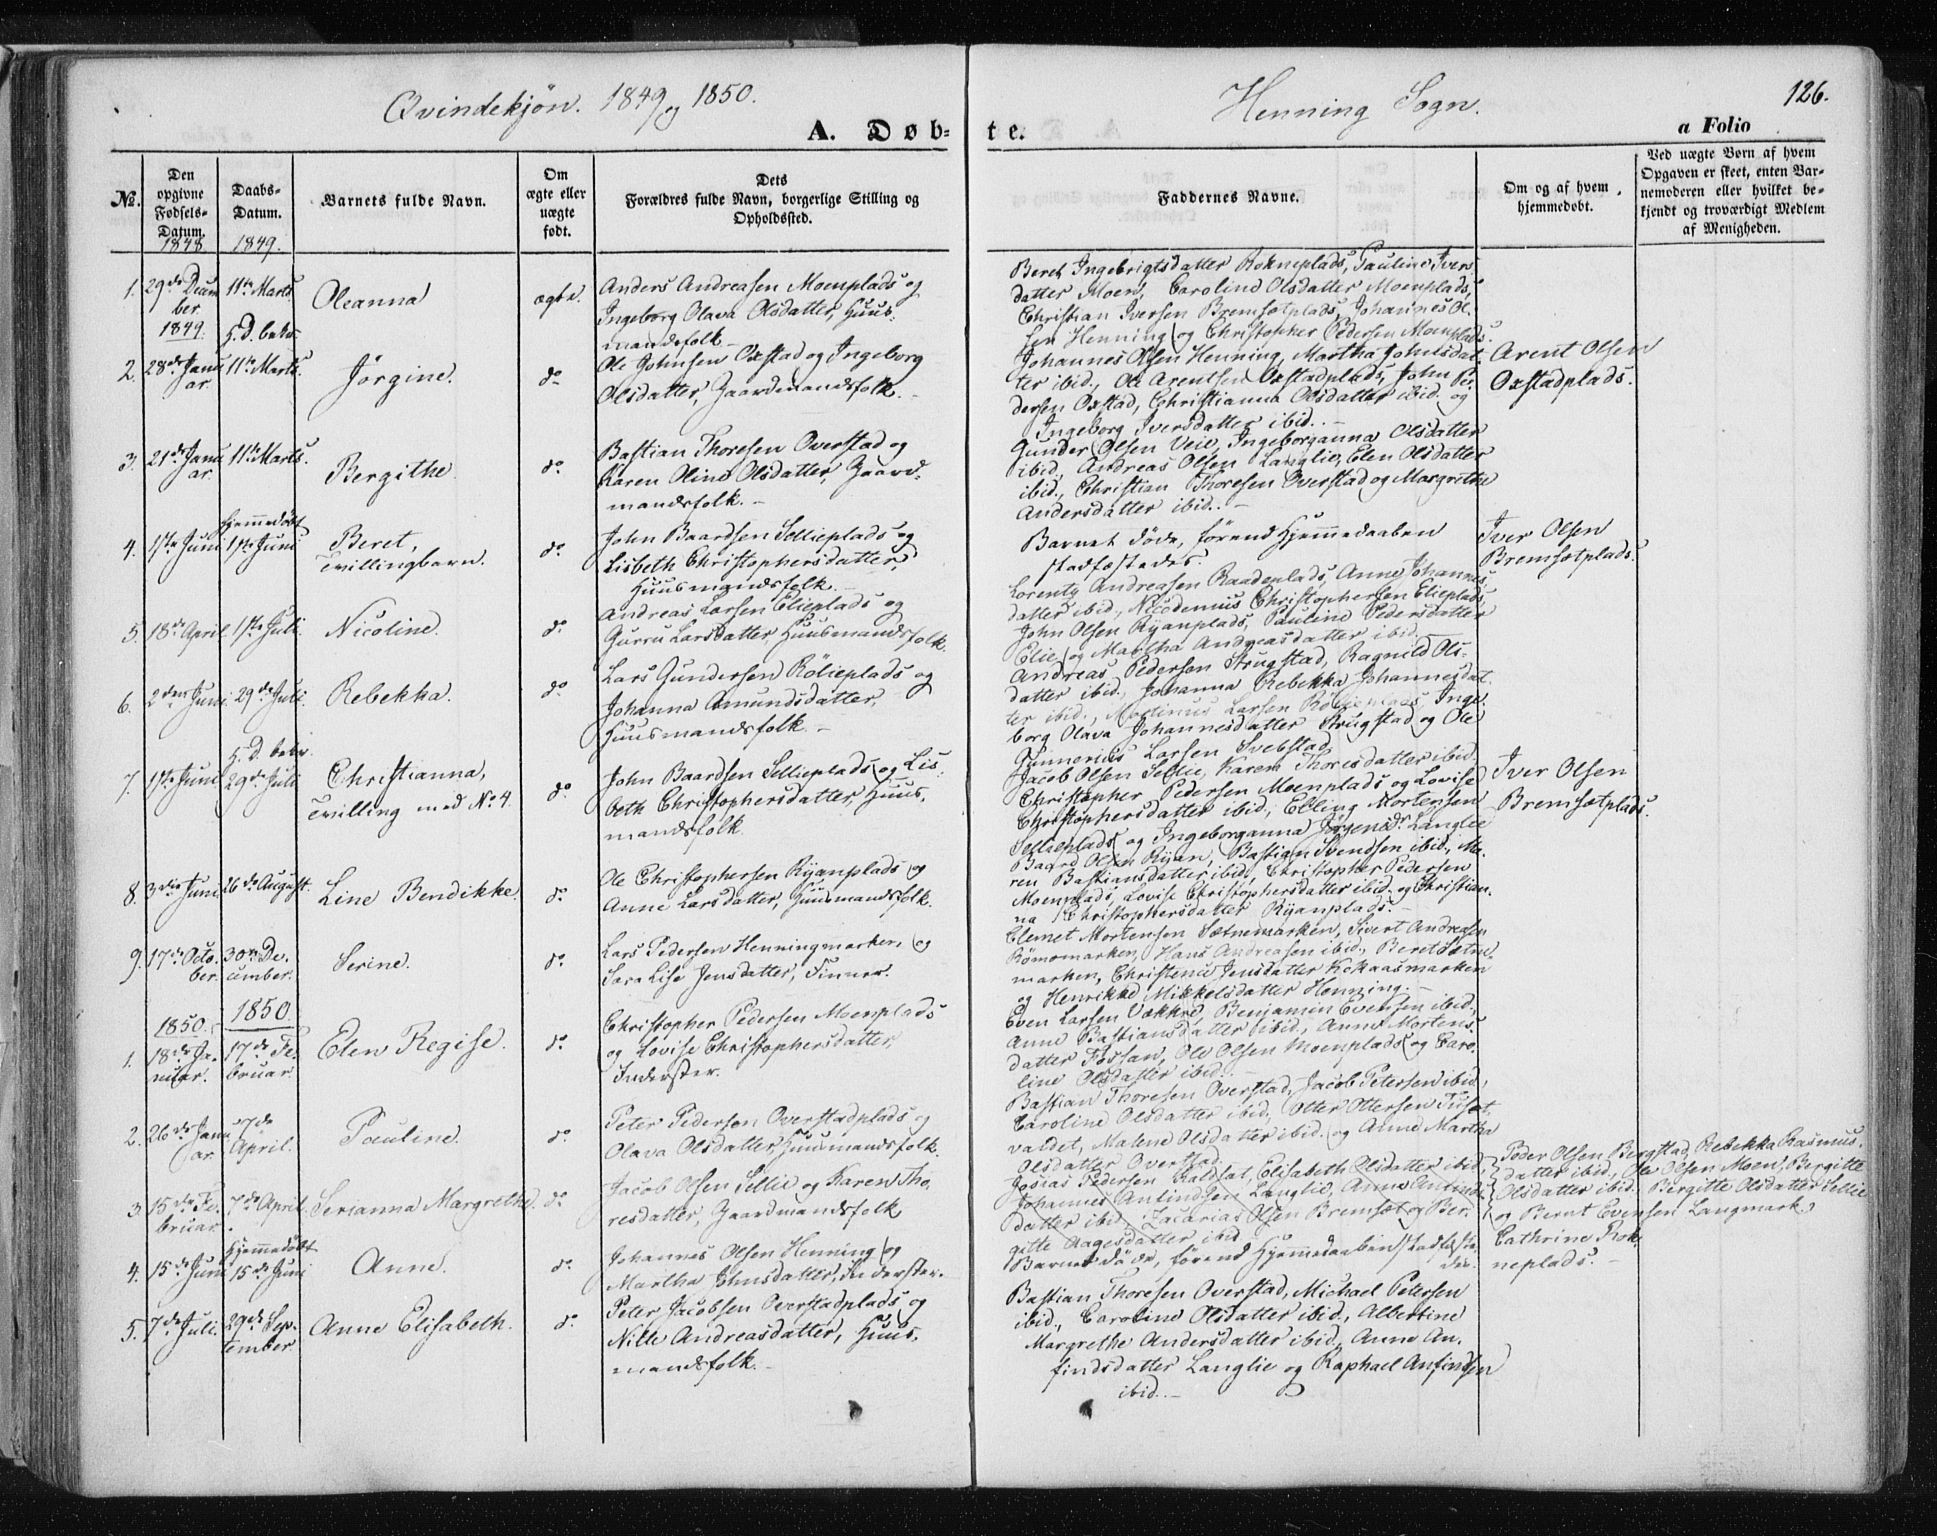 Qvindekjøn. 1849 og 1850.
Henning Sogn.
126.
A. Døb-
te.
a Folio
No.
Den opgivne Fødsels-Datum.
Daabs-Datum.
Barnets fulde Navn.
Om ægte eller uægte født.
Dets
Forældres fulde Navn, borgerlige Stilling og
Opholdssted.
Faddernes Navne.
Om og af hvem
hjemmedøbt.
Ved uægte Børn af hvem
Opgaven er skeet, enten Bar-
nemoderen eller hvilket be-
kjendt og troværdigt Medlem
af Menigheden.
1848. 1849.
1. 29de Decem
ber.
11te Marts
Oleanna
ægte.
Anders Andreasen Moenplads og
Ingeborg Olava Olsdatter, Huus-
mandsfolk.-
Beret Ingebrigtsdatter Rokneplads, Pauline Ivers
datter Moen, Caroline Olsdatter Moenplads,
Christian Iversen Bremsetplads, Johannes Ol-
sen Henning og Christopher Pedersen Moenplads.
1849. H. D. bekr.
2. 28de Janu
ar.
11te Marts.
Jørgine.
do
Ole Johnsen Oxstad og Ingeborg
Olsdatter, Gaardmandsfolk.-
Johannes Olsen Henning, Martha Johnsdat-
ter ibid., Ole Arentsen Oxstadplads, John Pe-
dersen Oxstad, Christianna Olsdatter ibid. og
Ingeborg Iversdatter ibid..-
Arent Olsen
Oxstadplads.
3. 21de Janu
ar.
11te Marts.
Bergithe
do
Bastian Thoresen Overstad og
Karen Oline Olsdatter, Gaard-
mandsfolk.-
Gunder Olsen Veie, Ingeborganna Olsdatter
ibid, Andreas Olsen Langlie, Elen Olsdatter
ibid., Christian Thoresen Overstad og Margrethe
Andersdatter ibid..-
Hjemmedøbt
4. 1ste Juni 1ste Juni
Beret,
Tvillingbarn.
do
John Baardsen Sellieplads og
Lisbeth Christophersdatter,
Huusmandsfolk.-
Barnet døde, førend Hjemmedaaben
stadfæstedes.
Iver Olsen
Bremsetplads.
5. 18de April. 1ste Juli.
Nicoline.
do
Andreas Larsen Elieplads og
Gurru Larsdatter, Huusmandsfolk.
Lorentz Andreasen Raadeplads, Anne Johannes
datter ibid., Nicodemus Christophersen Elieplads
John Olsen Ryanplads, Pauline Pedersdatter
Elie og Martha Andreasdatter ibid.
6. 2den Juni 29de Juli.
Rebekka.
do
Lars Gundersen Rølieplads og
Johanna Amundsdatter,
Huusmandsfolk.-
Andreas Pedersen Strugstad, Ragnild Ols-
datter ibid., Johanna Rebekka Johannesdat
ter ibid., Martinus Larsen Rølieplads, Inge-
borg Olava Johannesdatter Strugstad og Ole
Gunnerius Larsen Svebstad
H. D. bekr.
7. 1ste Juni 29de Juli
Christianna,
Tvilling med No 4.
do
John Baardsen Sellieplads og Lis-
beth Christophersdatter, Huus-
mandsfolk.
Jacob Olsen Sellie, Karen Thoresdatter ibid.
Christopher Pedersen Moenplads og Lovise
Christophersdatter ibid, Elling Mortensen
Sellieplads og Ingeborganna Jørgensdr Langlie
Iver Olsen
Bremsetplads.
8. 3die Juni 26de August.
Line Bendikke.
do
Ole Christophersen Ryanplads og
Anne Larsdatter, Huusmandsfolk.
Baard Olsen Ryan, Bastian Svendsen ibid, Ma-
ren Bastiansdatter ibid, Christopher Pedersen
Moenplads, Lovise Christophersdatter ibid. og Christian-
na Christophersdatter Ryanplads.-
9. 17de Octo-
ber.
30te De-
cember.
Serine.
do
Lars Pedersen Henningmarken, og
Sara Lise Jensdatter, Finner.
Clemet Mortensen Sætnemarken, Sivert Andreasen
Rømomarken, Hans Andreasen ibid., Beret Sætne-
marken, Christence Jensdatter Kokaasmarken
og Henrikke Mikkelsdatter Henning.-
1850. 1850.
1. 18de Ja-
nuar.
17de Fe-
bruar.
Elen Regise.
do
Christopher Pedersen Moenplads
og Lovise Christophersdatter
Inderster.
Even Larsen Vække, Benjamin Evensen ibid,
Anne Bastiansdatter ibid, Anne Mortens-
datter Fossan, Ole Olsen Moenplads og Caro-
line Olsdatter ibid.-
2. 26de Janu
ar.
7de
April.
Pauline.
do
Peter Pedersen Overstadplads og
Olava Olsdatter, Huusmandsfolk.
Bastian Thoresen Overstad, Jacob Petersen ibid,
Caroline Olsdatter ibid, Otter Ottersen Tuset,
valdet, Malene Olsdatter ibid. og Anne Martha
Olsdatter Overstad.
3. 15de Fe-
bruar.
7de April.
Serianna Margrethe.
do
Jacob Olsen Sellie og Karen Tho-
resdatter, Gaardmandsfolk
Josias Pedersen Kaldsat, Elisabeth Olsdatter ibid,
Johannes Anfindsen Langlie, Anne Anfinds-
datter ibid, Zacarias Olsen Bremset og Ber-
gitte Aagesdatter ibid
Peder Olsen Bergstad, Rebekka Rasmus-
datter ibid., Ole Olsen Moen, Bergitte
Olsdatter ibid., Bergitte Olsdatter Sellie
og Bernt Evensen Langmark
Hjemmedøbt
4. 15de Juni 15de Juni
Anne.
do
Johannes Olsen Henning og
Martha Johnsdatter, Inderster.
Barnet døde, førend Hjemmedaaben stadfæste-
des.
Cathrine Rok-
neplads.-
5. 7de Juli. 29de Sep-
tember
Anne Elisabeth.
do
Peter Jacobsen Overstadplads og
Nille Andreasdatter, Huus-
mandsfolk.-
Bastian Thoresen Overstad, Michael Petersen
ibid., Caroline Olsdatter ibid., Albertine
Margrethe Andersdatter ibid, Anne An-
findsdatter Langlie og Raphael Anfindsen
ibid..-